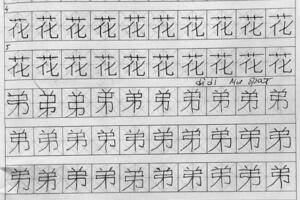 4
花 花 花 花 花 花 花 花 花 花
5
花 花 花 花 花 花 花 花 花 花
dìdi
弟 弟 弟 弟 弟 弟 弟 弟 弟 弟
弟 弟 弟 弟 弟 弟 弟 弟 弟 弟
弟 弟 弟 弟 弟 弟 弟 弟 弟 弟